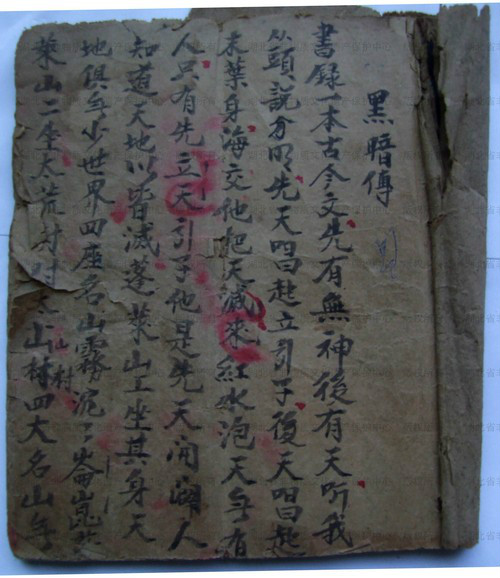 黑暗傳
書録一本古今文先有無神後有天听我
从頭說分明先天唱起立引子後天唱起
末葉身海交他把天滅來紅水泡天無有
人只有先立天引子他是先天開闢人
知道天地以皆滅蓬萊山上坐其身天
地俱無少世界四座名山霧泥〻崙崑
萊山二座太荒村山村四大名山無
山村